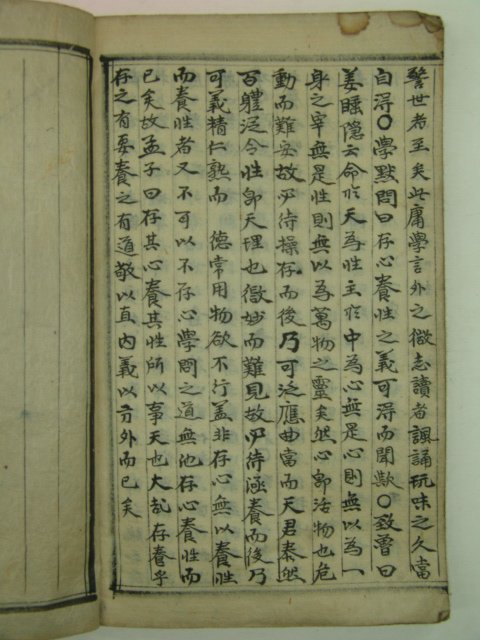 警世者至矣此庸學言外之微志讀者諷誦玩味之久當
自得○學默問曰存心養性之義可得而聞歟○致曾曰
姜睡隱云命於天為性主於中為心無是心則無以為一
身之宰無是性則無以為萬物之靈矣然心卽活物也危
動而難安故必待操存而後乃可泛應曲當而天君泰然
百軆從令性卽天理也微妙而難見故必待涵養而後乃
可義精仁熟而 德常用物欲不行盖非存心無以養性
而養性者又不可以不存心學問之道無他存心養性而
已矣故孟子曰存其心養其性所以事天也大哉存養乎
存之有要養之有道敬以直內義以方外而已矣